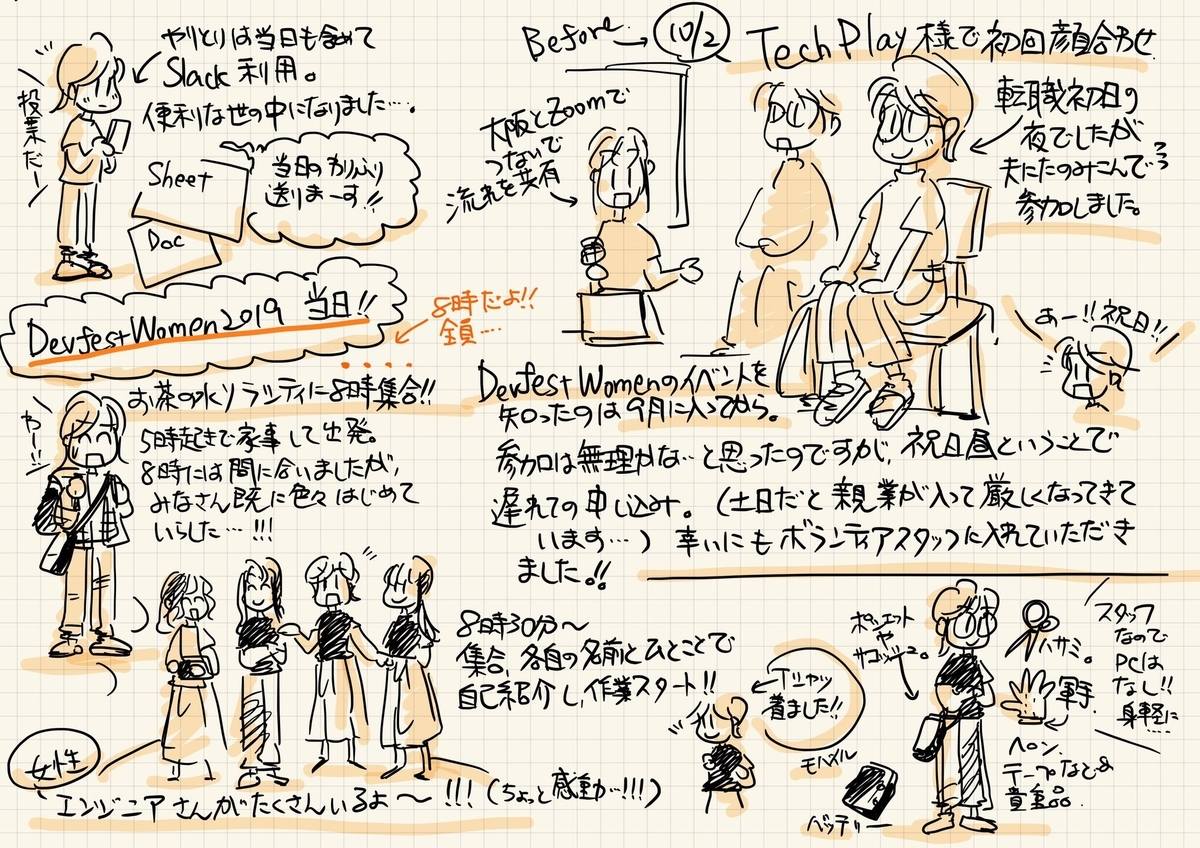 やりとりは当日も含めて
Slack 利用。
便利な世の中になりました…。
投業だー
Sheet
Doc
当日のカリふり
送りまーす!!
Before → 10/2
TechPlay様で初回顔合わせ
大阪とZoomで
つないで
流れを共有
転職初日の
夜でしたが
夫にたのみこんで
参加しました。
あー!!祝日!!
DevfestWomenのイベントを
知ったのは9月に入ってから。
参加は無理かな…と思ったのですが、祝日昼ということで
遅れての申し込み。(土日だと親業が入って厳しくなってきて
います…) 幸いにもボランティアスタッフに入れていただき
ました。!!
DevfestWomen2019 当日!!
8時だよ!!
全員….
お茶の水ソラシティに8時集合!!
わー!!
5時起きで家事して出発。
8時には間に合いましたが、
みなさん既に色々はじめて
いらした…!!!
8時30分〜
集合、各自の名前とひとことで
自己紹介し、作業スタート!!
女性
エンジニアさんがたくさんいるよ〜!!!(ちょっと感動…!!!)
Tシャツ
着ました!!
ポシェット
や
サコッシュ。
ハサミ。
軍手
ペン、
テープなど&
貴重品.
スタッフ
なので
PCは
なし!!
身軽に
….
モバイル
バッテリー